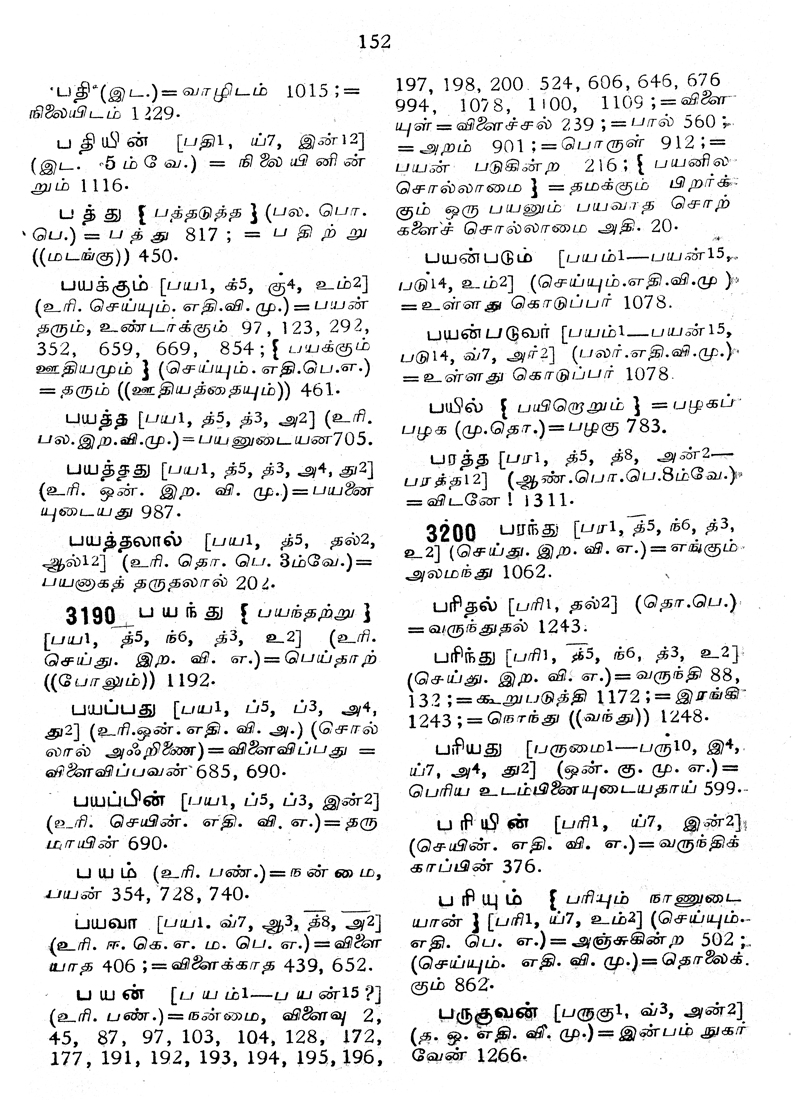 152
பதி (இட.)=வாழிடம் 1015;=
நிலையிடம் 1229.
பதியின் [பதி1, ய்7, இன்12]
(இட. 5ம்வே.) = நிலையினின்
றும் 1116.
பத்து { பத்தடுத்த } (பல. பொ.
பெ.)=பத்து 817; = பதிற்று
((மடங்கு)) 450.
பயக்கும் [பய1, க்5, கு4, உம்2]
(உரி. செய்யும். எதி.வி. மு.)=பயன்
தரும், உண்டாக்கும் 97, 123, 292,
352, 659, 669, 854; { பயக்கும்
ஊதியமும் } (செய்யும். எதி.பெ.எ.)
=தரும் ((ஊதியத்தையும்)) 461.
பயத்த [பய1, த்5, த்3, அ2] (உரி.
பல.இற.வி.மு.)=பயனுடையன705.
பயத்தது [பய1, த்5, த்3, அ4, து2]
(உரி. ஒன். இற. வி. மு.)=பயனை
யுடையது 987.
பயத்தலால் [பய1, த்5, தல்2,
ஆல்12] (உரி. தொ. பெ. 3ம்வே.)=
பயனாகத் தருதலால் 202.
3190 பயந்து { பயந்தற்று }
[பய1, த்5, ந்6, த்3, உ2] (உரி.
செய்து. இற. வி. எ.)=பெய்தாற்
((போலும்)) 1192.
பயப்பது [பய1, ப்5, ப்3, அ4,
து2] (உரி.ஒன்.எதி. வி. அ.) (சொல்
லால் அஃறிணை)=விளைவிப்பது =
விளைவிப்பவன் 685, 690.
பயப்பின் [பய1, ப்5, ப்3, இன்2]
(உரி. செயின். எதி. வி. எ.)=தரு
மாயின் 690.
பயம் (உரி. பண்.)=நன்மை,
பயன் 354, 728, 740.
பயவா [பய1. வ்7, ஆ3, த்8, அ2]
(உரி. ஈ. கெ.எ. ம. பெ. எ.)=விளை
யாத 406;=விளைக்காத 439, 652.
பயன் [பயம்1—பயன்15?]
(உரி. பண்.)=நன்மை, விளைவு 2,
45, 87, 97, 103, 104, 128, 172,
177, 191, 192, 193, 194, 195, 196,
197, 198, 200. 524, 606, 646, 676
994, 1078, 1100, 1109;=விளை
யுள்=விளைச்சல் 239;=பால் 560;
=அறம் 901;=பொருள் 912;=
பயன் படுகின்ற 216; { பயனில
சொல்லாமை } =தமக்கும் பிறர்க்
கும் ஒரு பயனும் பயவாத சொற்
களைச் சொல்லாமை அதி. 20.
பயன்படும் [பயம்1—பயன்15,
படு14, உம்2] (செய்யும்.எதி.வி.மு )
=உள்ளது கொடுப்பர் 1078.
பயன்படுவர் [பயம்1—பயன்15,
படு14, வ்7, அர்2] (பலர்.எதி.வி.மு.)
=உள்ளது கொடுப்பர் 1078.
பயில் { பயிறொறும் } =பழகப்
பழக (மு.தொ.)=பழகு 783.
பரத்த [பர1, த்5, த்8, அன்2—
பரத்த12] (ஆண்.பொ.பெ.8ம்வே.)
=விடனே ! 1311.
3200 பரந்து [பர1, த்5, ந்6, த்3,
உ2] (செய்து. இற. வி. எ.)=எங்கும்
அலமந்து 1062.
பரிதல் [பரி1, தல்2] (தொ.பெ.)
=வருந்துதல் 1243.
பரிந்து [பரி1, த்5, ந்6, த்3, உ2]
(செய்து. இற. வி. எ.)=வருந்தி 88,
132;=கூறுபடுத்தி 1172;=இரங்கி
1243;=நொந்து ((வந்து)) 1248.
பரியது [பருமை1—பரு10, இ4,
ய்7, அ4, து2] (ஒன். கு. மு. எ.)=
பெரிய உடம்பினையுடையதாய் 599.
பரியின் [பரி1, ய்7, இன்2]
(செயின். எதி. வி. எ.)=வருந்திக்
காப்பின் 376.
பரியும் { பரியும் நாணுடை
யான் } [பரி1, ய்7, உம்2] (செய்யும்.
எதி. பெ. எ.)=அஞ்சுகின்ற 502;
(செய்யும். எதி. வி. மு.)=தொலைக்
கும் 862.
பருகுவன் [பருகு1, வ்3, அன்2]
(த. ஒ. எதி. வி. மு.)=இன்பம் நுகர்
வேன் 1266.